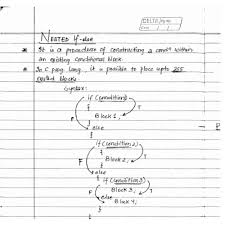 NESTED If-else
* It is a procedure of constructing a condⁿ within
an existing conditional block.
* In C prog. lang., it is possible to place upto 255
nested blocks.
Syntax:
if (condition)
{
Block 1;
}
else
{
if (condition 2)
{
Block 2;
}
else
{
if (condition 3)
Block 3;
else
Block 4;